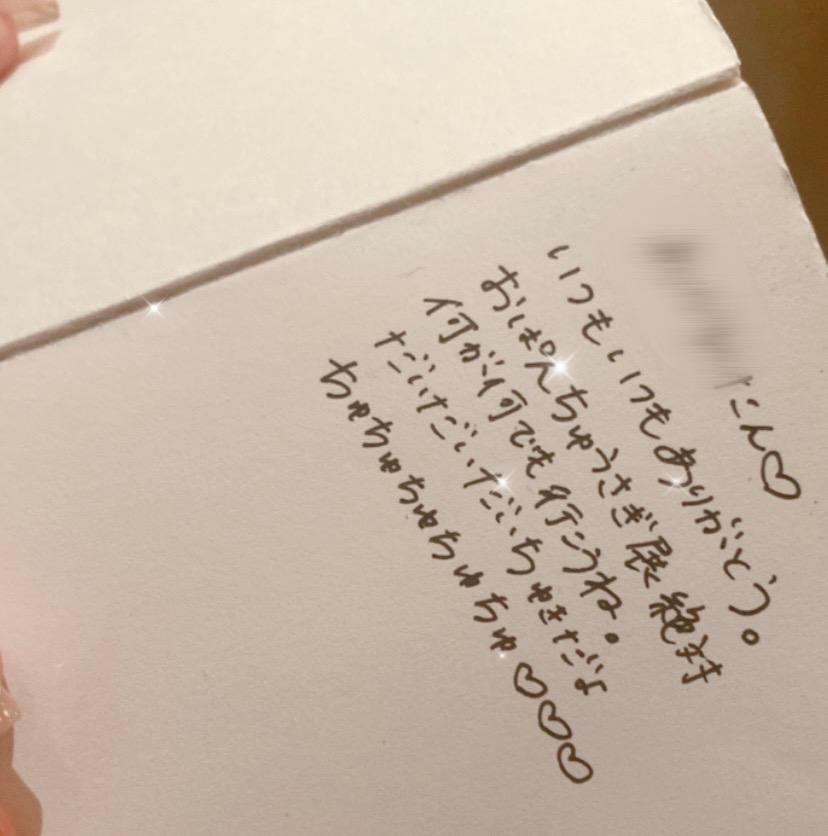 たん♡
いつもいつもありがとう。
おぱんちゅうさぎ展絶対
何が何でも行こうね。
だいだいだいちゅきだよ
ちゅちゅちゅちゅちゅ♡♡♡